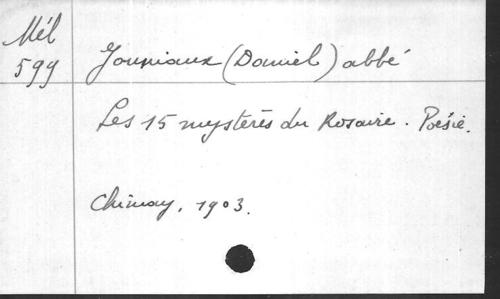 Mél
599
Jouniaux (Daniel) abbé
Les 15 mystères du Rosaire. Poésie.
Chimay, 1903.